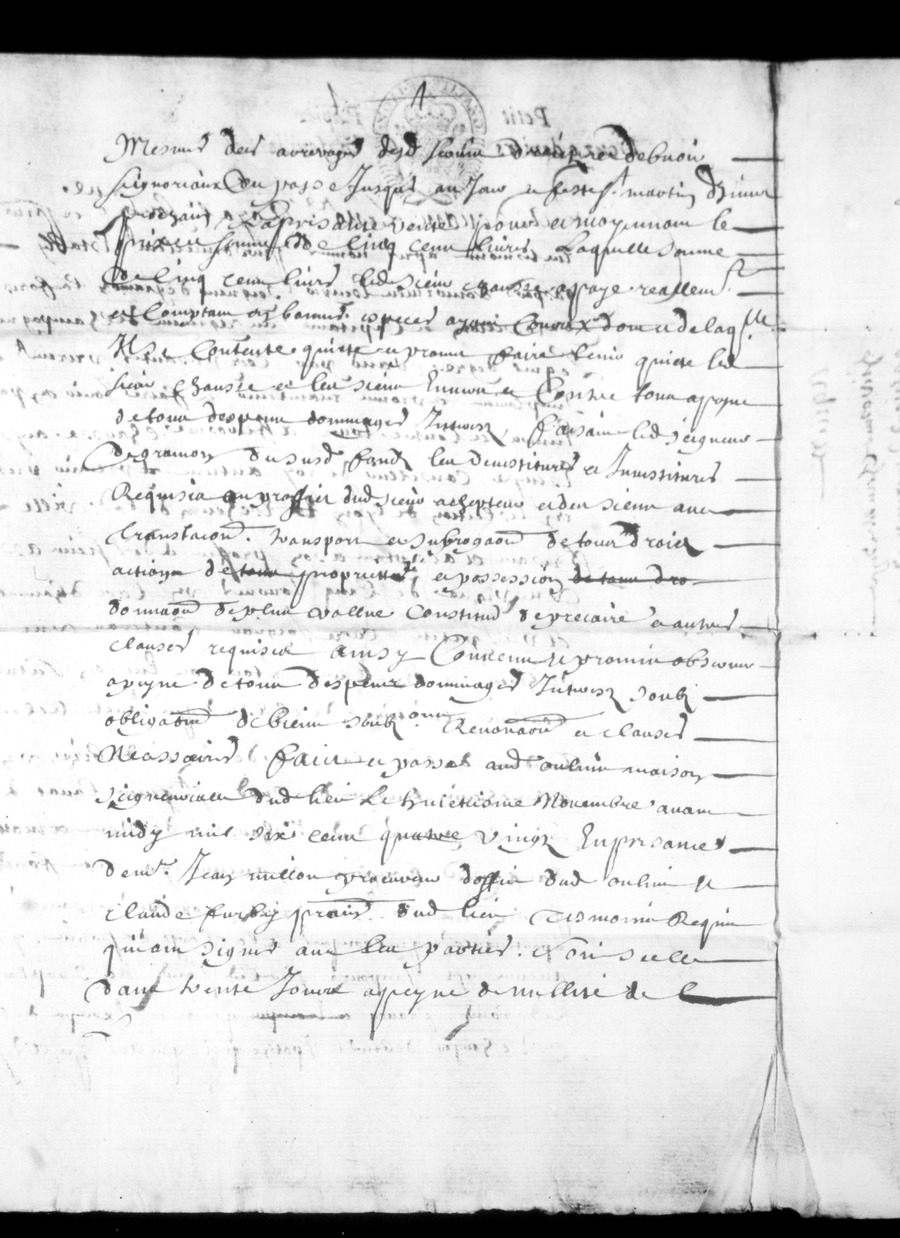 Mesmes des arrerages desd servis et autres debvoirs
seignoriaux du passé Jusques au Jour et feste st martin d'hiver
prochain La p̃rnte vente pour et moyennant le
prix et somme de cinq cent livres Laquelle somme
de cinq cent livres led sieur chausse a payé reallemt
et Comptant en bonnes especes ayant Cours dont et de laqlle
Il se Contente quicte et promet faire tenir quicte led
sieur chausse et les siens Envers et Contre tous a peyne
de tous despens dommages Interestz, faisant led seigneur
de gramon du susd fondz les devestitures et Investitures
Requises au proffict dud sieur achepteur et des siens avec
translaõn. transport et subrogaõn de tous droictz
actions de tous proprietté et possession de tous dro
donnaõn de plus vallue Constitud de precaire et autres
clauses requises ainsy Convenu et promis observer
a peyne de tous despens dommages Interestz soubz
obligaõn de biens soubz Renonaõn et clauses
Necessaires faict et passé aud oullins maison
seigneurialle dud lieu Le huictiesme Novembre avant
midy mil six cent quatre vingtz En p̃rsance
de mr Jean million procureur d'office dud oullins et
claude furby dud lieu tesmoins Requis
qu'ont signés avec les parties. soit scellé
dans trente Jours a peyne de nullité de l